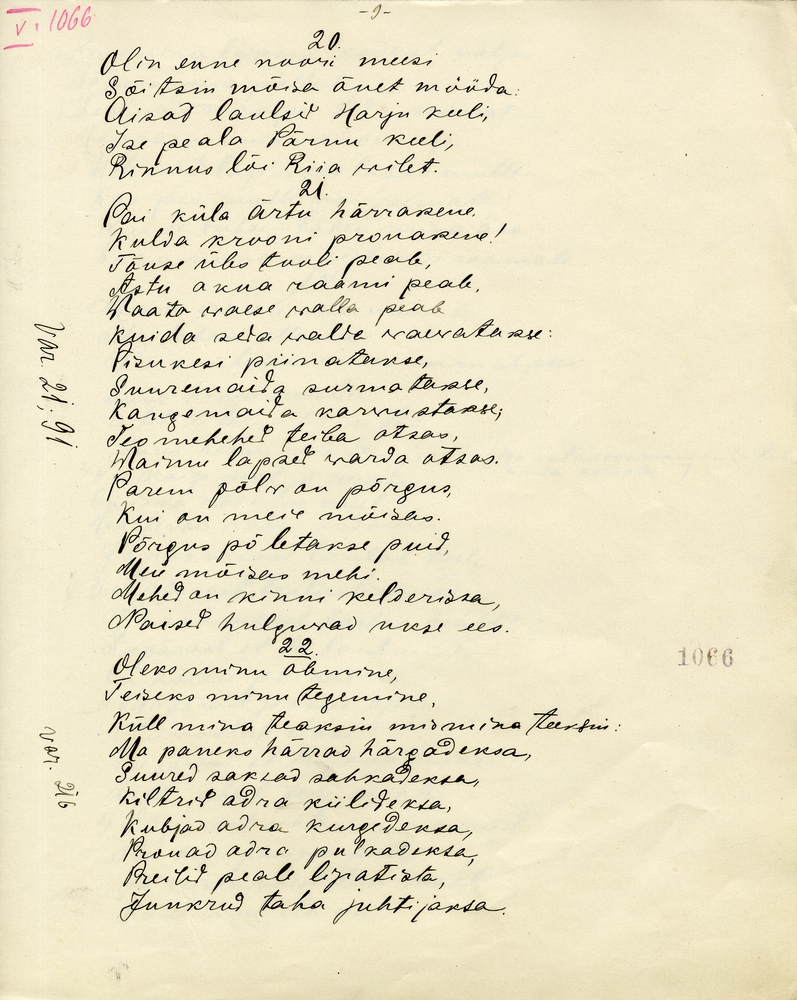 V, 1066
-9-
20.
Olin enne noori meesi
Sõitsin mõisa õuet mööda:
Aisad laulsid Harju keeli,
Ise peala Pärnu keeli,
Rinnus lõi Riia wilet.
21.
Pai küla ärtu härrakene.
Kulda krooni prouakene!
Tõuse üles tooli peale,
Astu akna raami peale,
Waata waese walla peale
Kuida seda walda waewatakse:
Pisukesi piinatakse,
Suuremaida surmatakse,
Kangemaida karwustakse;
Teomehehed teiba otsas,
Waimu lapsed warda otsas.
Parem põlw on põrgus,
Kui on meie mõisas.
Põrgus põletakse puid,
Meie mõisas mehi.
Mehed on kinni kelderissa,
Naised hulguwad ukse ees.
22.
Oleks minu olemine,
Teiseks minu tegemine,
Küll mina teaksin mis mina teeksin:
Ma paneks härrad härgadeksa,
Suured saksad sahkadeksa,
Kiltrid adra kiilideksa,
Kubjad adra kurgedeksa,
Prouad adra pulkadeksa,
Preilid peale lipatista,
Junkrud taha juhtijaksa.
Var. 21; 91
var. 216
1066